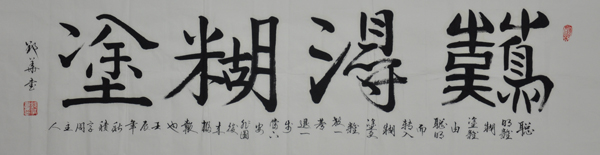 難得糊塗
聰明難糊塗難由聰明而轉入糊塗更難放一著退一步當下安非圖後來福報也壬辰年秋